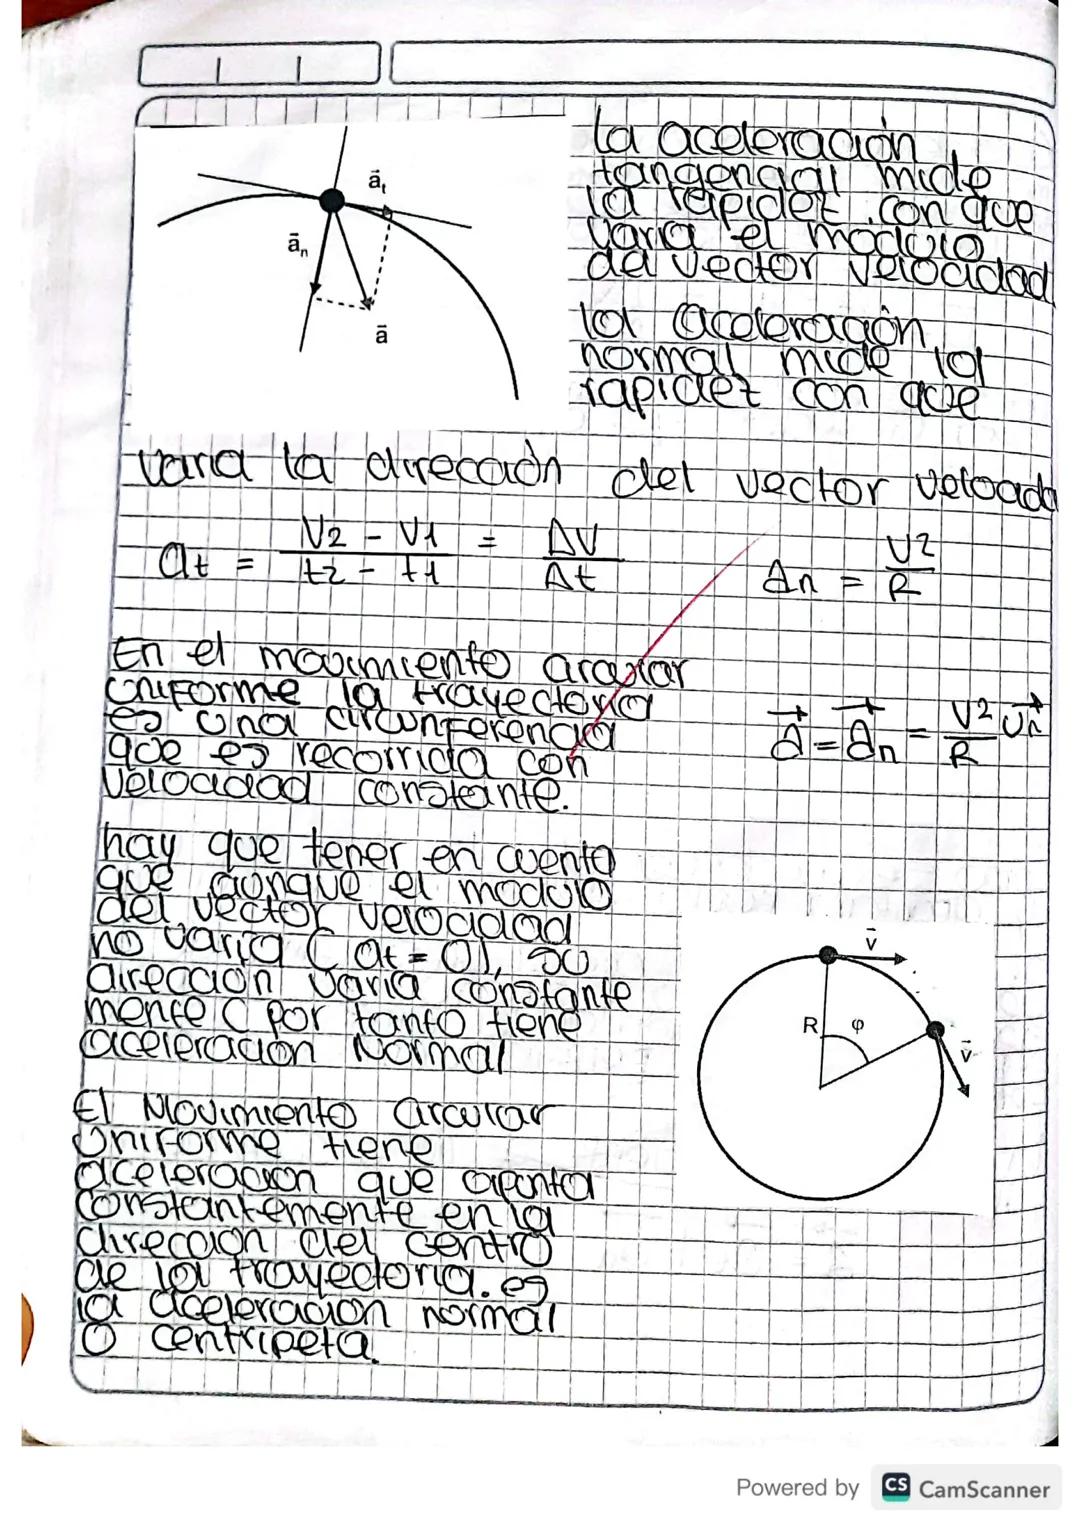 La aceleración
tangencial mide
la rapidez con que
varia el modulo
del vector velocidad
la aceleración
normal mide la
rapidez con que
varia la dirección del vector velocidad
āt
ān
ā
at = V2 - V1 / t2 - t1 = ΔV / Δt
an = V² / R
En el movimiento circular
uniforme la trayectoria
es una circunferencia
que es recorrida con
velocidad constante.
a⃗ = a⃗n = V² / R u⃗n
hay que tener en cuenta
que aunque el modulo
del vector velocidad
no varia ( at = 0), su
dirección varia constante
mente ( por tanto tiene
aceleración Normal
v⃗
R φ
v⃗
El Movimiento Circular
Uniforme tiene
aceleracion que apunta
constantemente en la
dirección del centro
de la trayectoria. es
la aceleración normal
o centripeta.
Powered by CS CamScanner